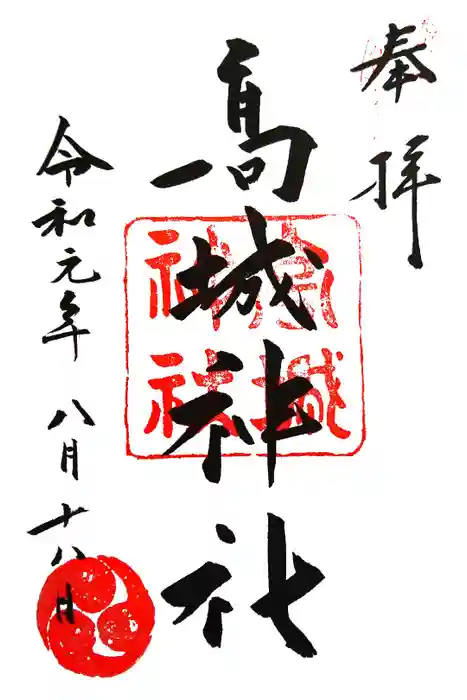 奉拝
高城神社
令和元年八月十八日
高城
神社